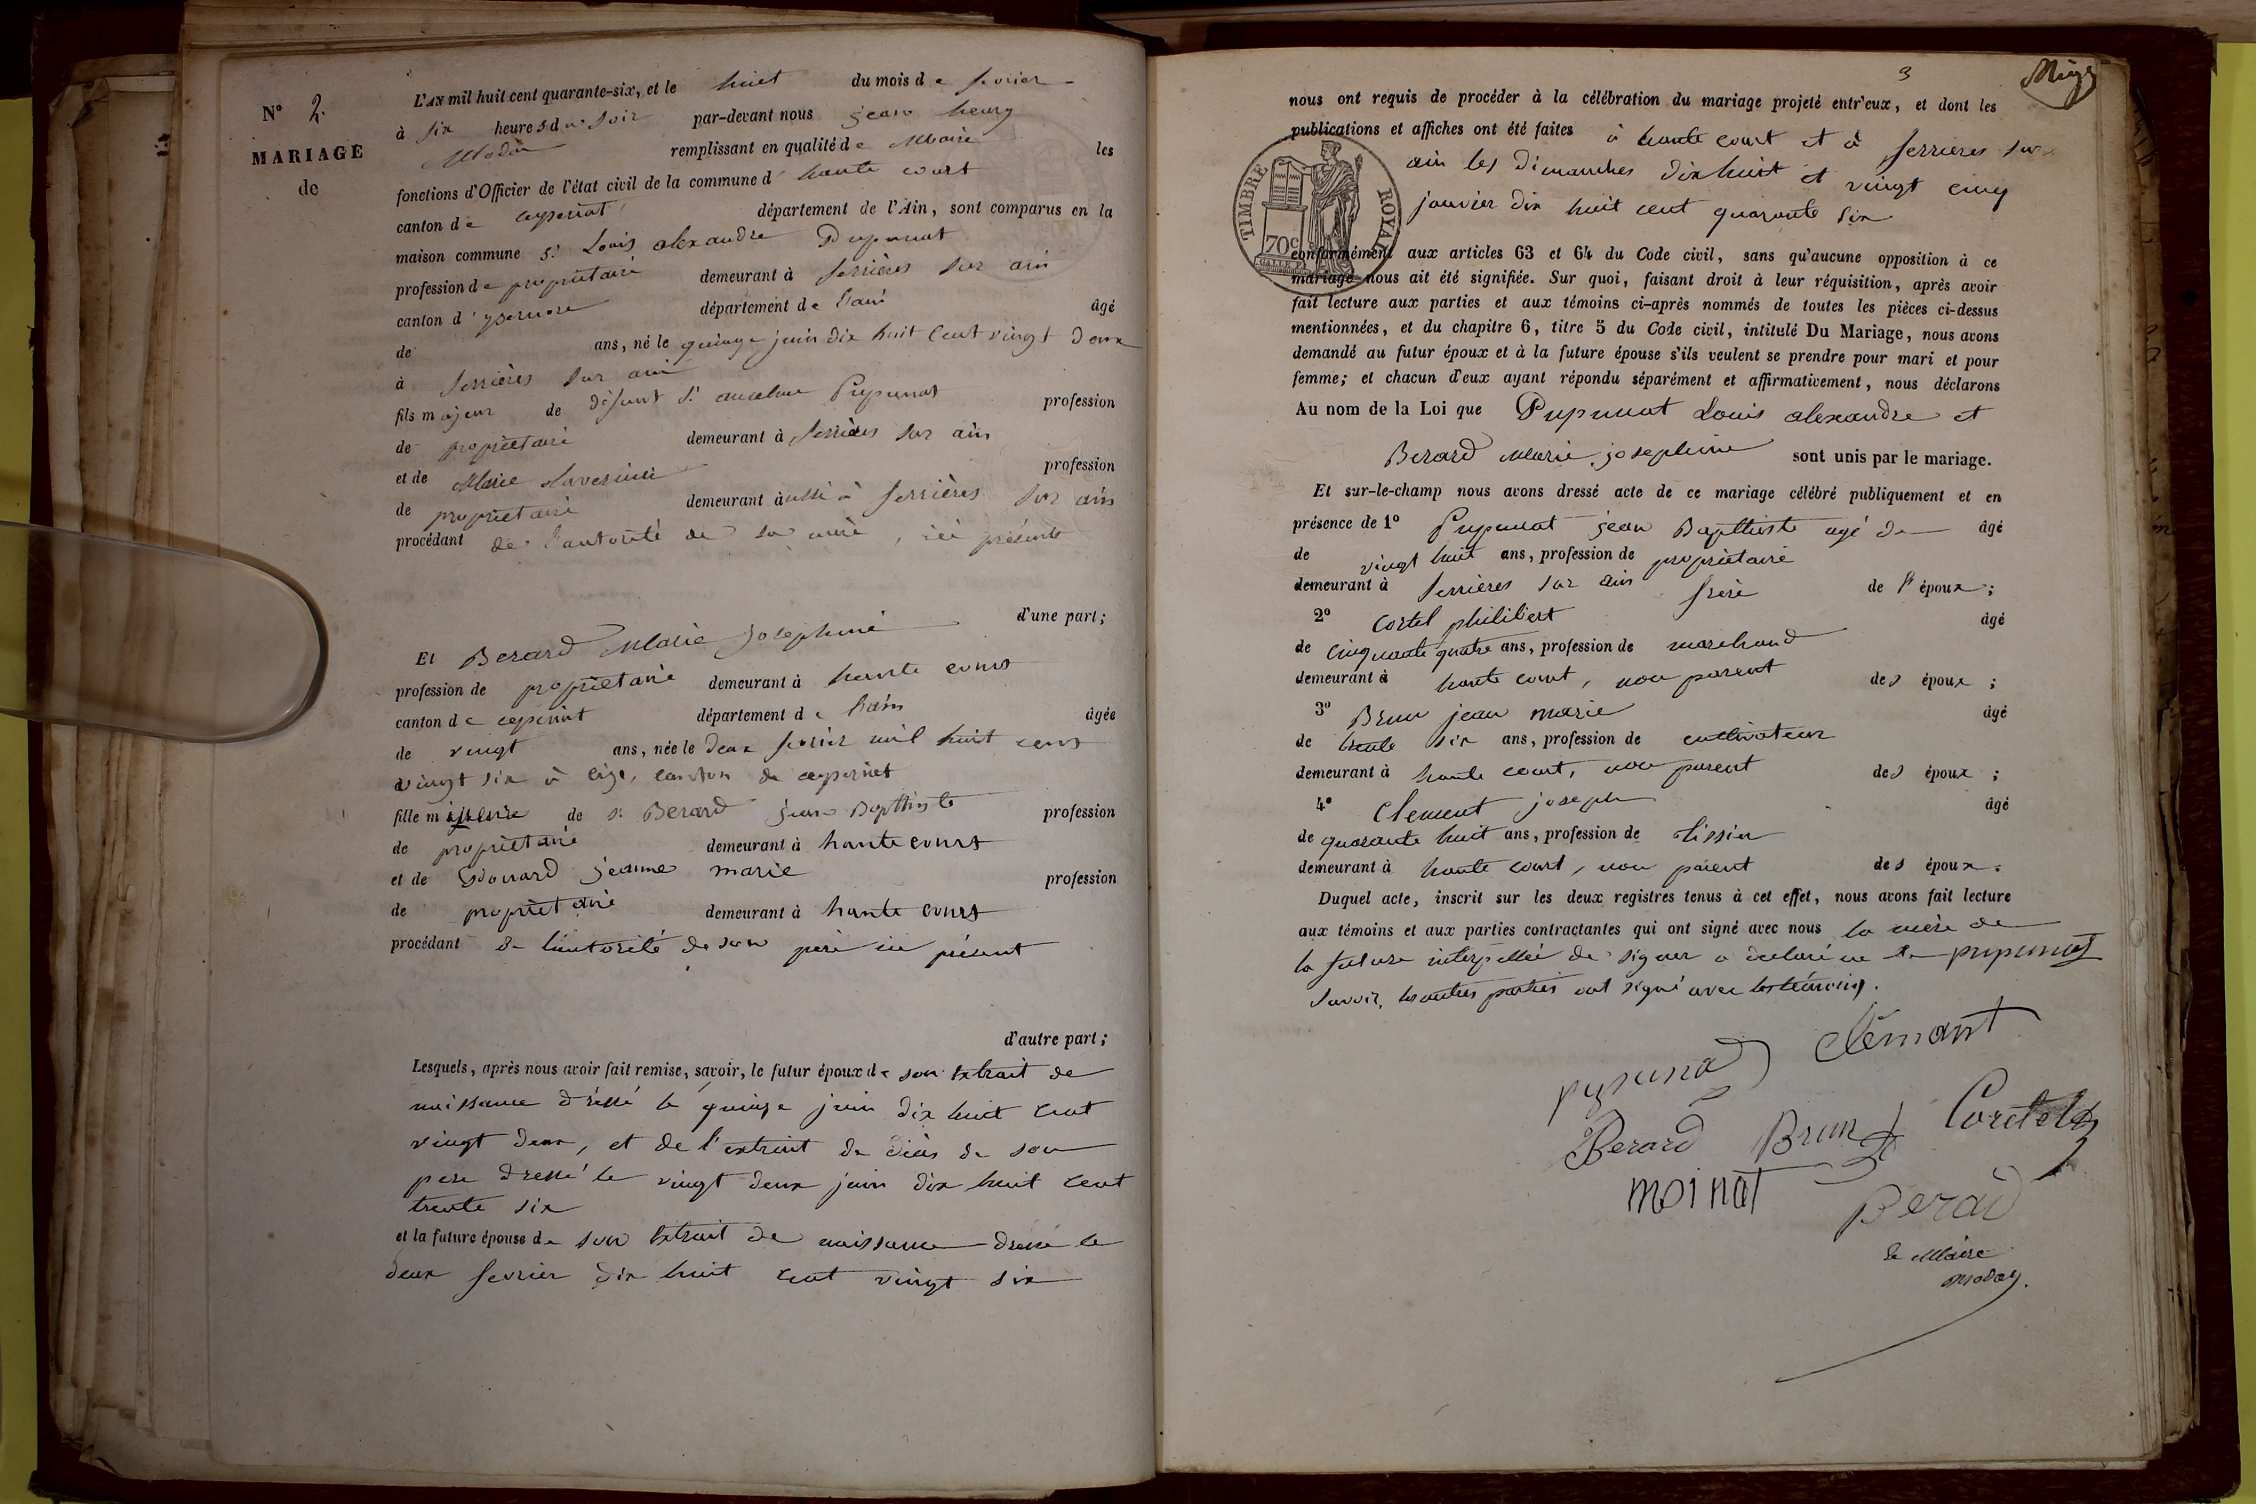 N° 2.
MARIAGE
de
L'AN mil huit cent quarante-six, et le huit du mois de fevrier
à six heures du soir par-devant nous jean henry
remplissant en qualité de Maire les
fonctions d'Officier de l'état civil de la commune d' haute court
canton de ceyseriat département de l'Ain, sont comparus en la
maison commune sr Louis alexandre Pupunat
profession de propriétaire demeurant à serrières sur ain
canton d' ysernore département de l'ain âgé
de ans, né le quinze juin dix huit cent vingt deux
à serrières sur ain
fils majeur de défunt sr Pupunat profession
de propriétaire demeurant à serrières sur ain
et de Marie profession
de propriétaire demeurant à aussi à serrières sur ain
procédant de l'autorité de sa mère, ici présente
d'une part;
Et Berard Marie josephine
profession de propriétaire demeurant à haute court
canton de ceyseriat département de l'ain âgée
de vingt ans, née le deux fevrier mil huit cent
vingt six à cize, canton de ceyseriat
fille mineure de sr Berard jean Baptiste profession
de propriétaire demeurant à haute court
et de Edouard jeanne marie profession
de propriétaire demeurant à haute court
procédant de l'autorité de son père ici présent
d'autre part;
Lesquels, après nous avoir fait remise, savoir, le futur époux de son extrait de
naissance dréssé le quinze juin dix huit cent
vingt deux, et de l'extrait de décès de son
pere dressé le vingt deux juin dix huit cent
trente six
et la future épouse de son extrait de naissance dressé le
deux fevrier dix huit cent vingt six
3
nous ont requis de procéder à la célébration du mariage projeté entr'eux, et dont les
publications et affiches ont été faites à haute court et à serrieres sur
ain les dimanches dix huit et vingt cinq
janvier dix huit cent quarante six
TIMBRE ROYAL
70c
conformément aux articles 63 et 64 du Code civil, sans qu'aucune opposition à ce
mariage nous ait été signifiée. Sur quoi, faisant droit à leur réquisition, après avoir
fait lecture aux parties et aux témoins ci-après nommés de toutes les pièces ci-dessus
mentionnées, et du chapitre 6, titre 5 du Code civil, intitulé Du Mariage, nous avons
demandé au futur époux et à la future épouse s'ils veulent se prendre pour mari et pour
femme; et chacun d'eux ayant répondu séparément et affirmativement, nous déclarons
Au nom de la Loi que Pupunat Louis alexandre et
Berard Marie josephine sont unis par le mariage.
Et sur-le-champ nous avons dressé acte de ce mariage célébré publiquement et en
présence de 1° Pupunat jean Baptiste agé de âgé
de vingt huit ans, profession de propriétaire
demeurant à serrières sur ain frère de l' époux;
2° Cortel philibert âgé
de cinquante quatre ans, profession de marchand
demeurant à haute court, non parent des époux;
3° Brun jean marie âgé
de trente six ans, profession de cultivateur
demeurant à haute court, non parent des époux;
4° Clement joseph âgé
de quarante huit ans, profession de tissier
demeurant à haute court, non parent des époux.
Duquel acte, inscrit sur les deux registres tenus à cet effet, nous avons fait lecture
aux témoins et aux parties contractantes qui ont signé avec nous la mère de
la future interpellée de signer a declaré ne le pupunat
savoir, les autres parties ont signé avec les témoins.
pupunat Clémant
Berard Brun Coretel
moinat Berard
le Maire